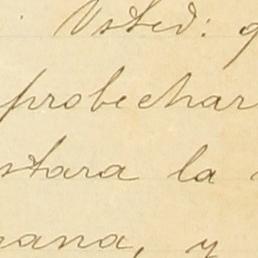 Usted: q
probechar
stara la
ana, y